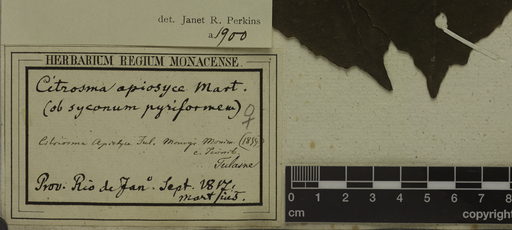 det. Janet R. Perkins
a. 1900
HERBARIUM REGIUM MONACENSE.
Citrosma apiosyce Mart.
(ob syconum pyriformem)
♀
Citriosma Apiosyce Tul. Monogr. Monim.
Tulasne
Prov. Rio de Jan°. Sept. 1817.
Mart
0 1 2 3 4 5 6 7 8
cm
copyright